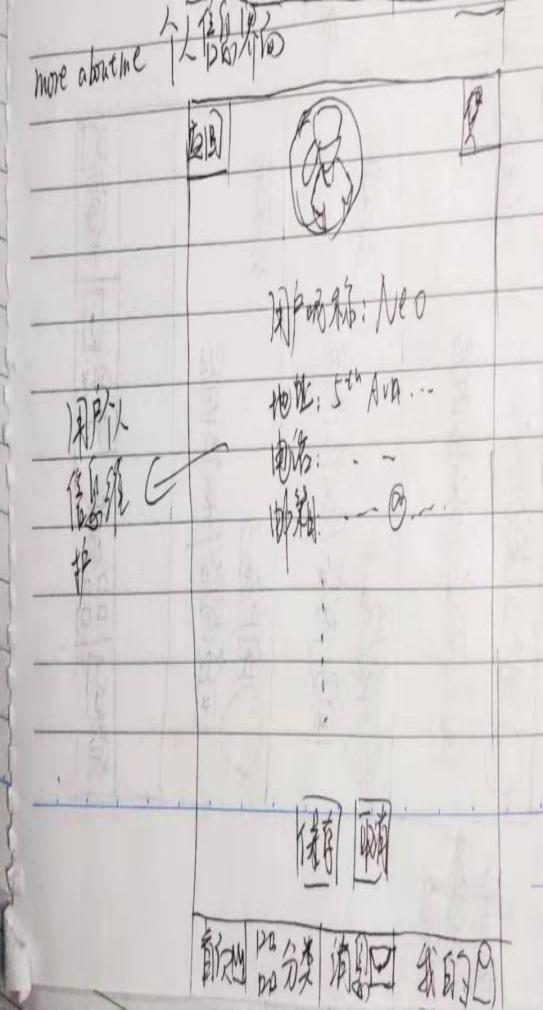 more about me 个人信息界面
返回
用户昵称: Neo
地址: 5th Ava...
电话: . -
邮箱: ...-@...-
用户个人
信息维
护
保存 取消
首页 分类 消息 我的